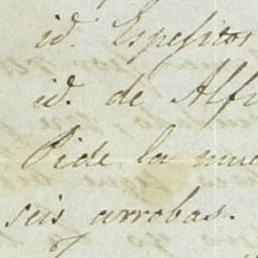 id. Espesitor
id. de Alfr
Pide la mue
seis arrobas.